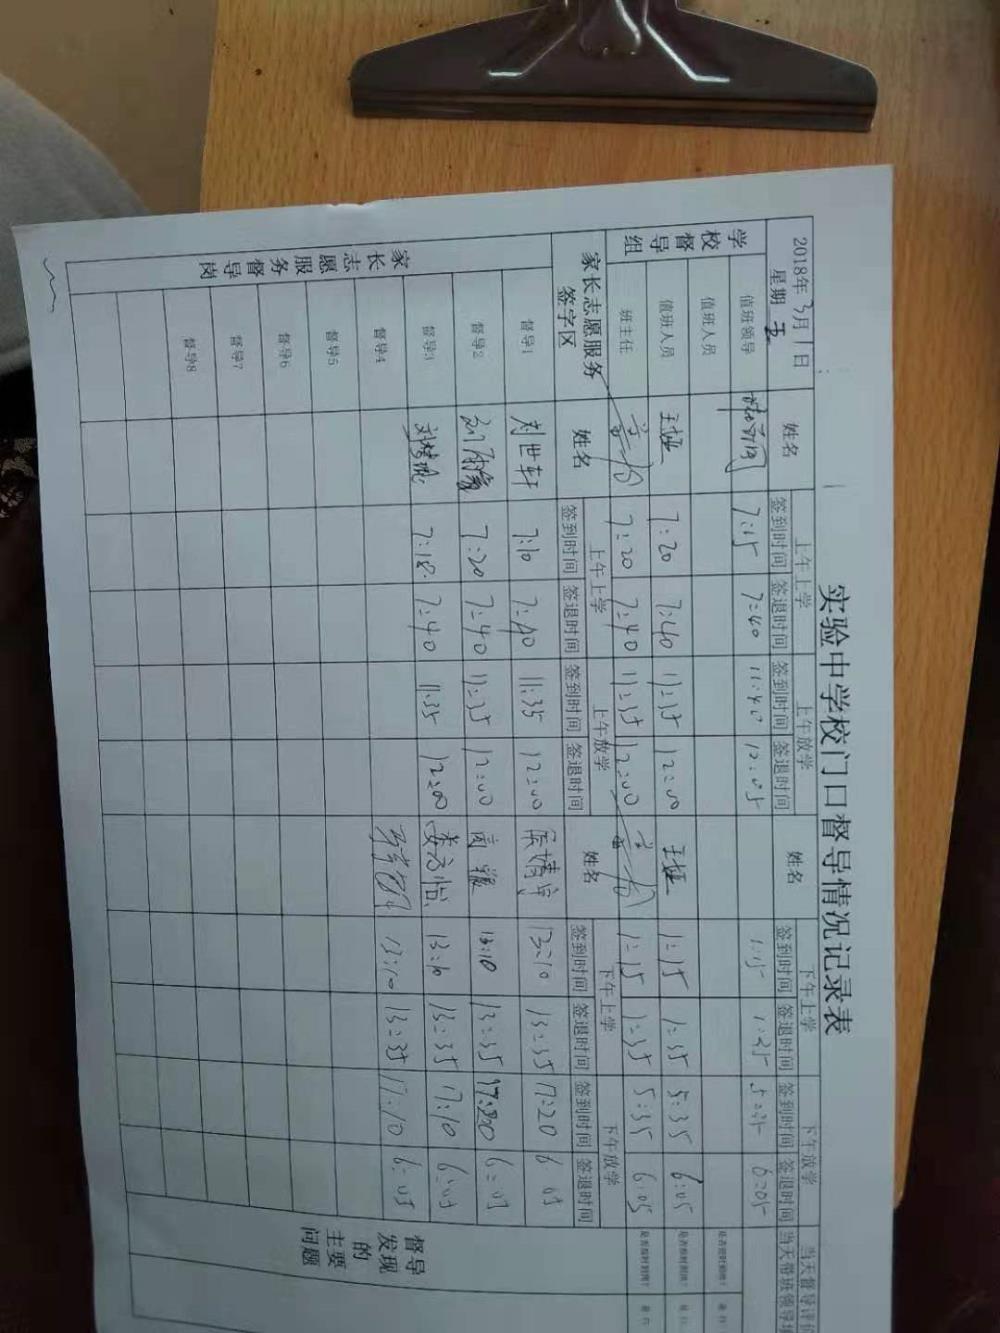 实验中学校门口督导情况记录表
2018年3月1日
星期 五
姓名 上午上学 上午放学 姓名 下午上学 下午放学 当天督导评价
签到时间 签退时间 签到时间 签退时间 签到时间 签退时间 签到时间 签退时间 当天带班领导
学校督导组
值班领导 7:15 7:40 11:40 12:05 1:15 1:35 5:35 6:05 是否按时到岗?
值班人员
值班人员 7:20 7:40 11:35 12:00 1:15 1:35 5:35 6:05 是否按时到岗?
班主任 7:20 7:40 11:35 12:00 1:15 1:35 5:35 6:05 是否按时到岗?
家长志愿服务签字区 姓名 上午上学 上午放学 姓名 下午上学 下午放学
签到时间 签退时间 签到时间 签退时间 签到时间 签退时间 签到时间 签退时间
家长志愿服务督导岗
督导1 刘世轩 7:10 7:40 11:35 12:00 13:10 13:35 17:20 6 05
督导2 7:20 7:40 11:35 12:00 13:10 13:35 17:20 6:05
督导3 7:18 7:40 11:35 12:00 13:10 13:35 17:10 6:05
督导4 13:10 13:35 17:10 6:05
督导5
督导6
督导7
督导8
督导发现的主要问题